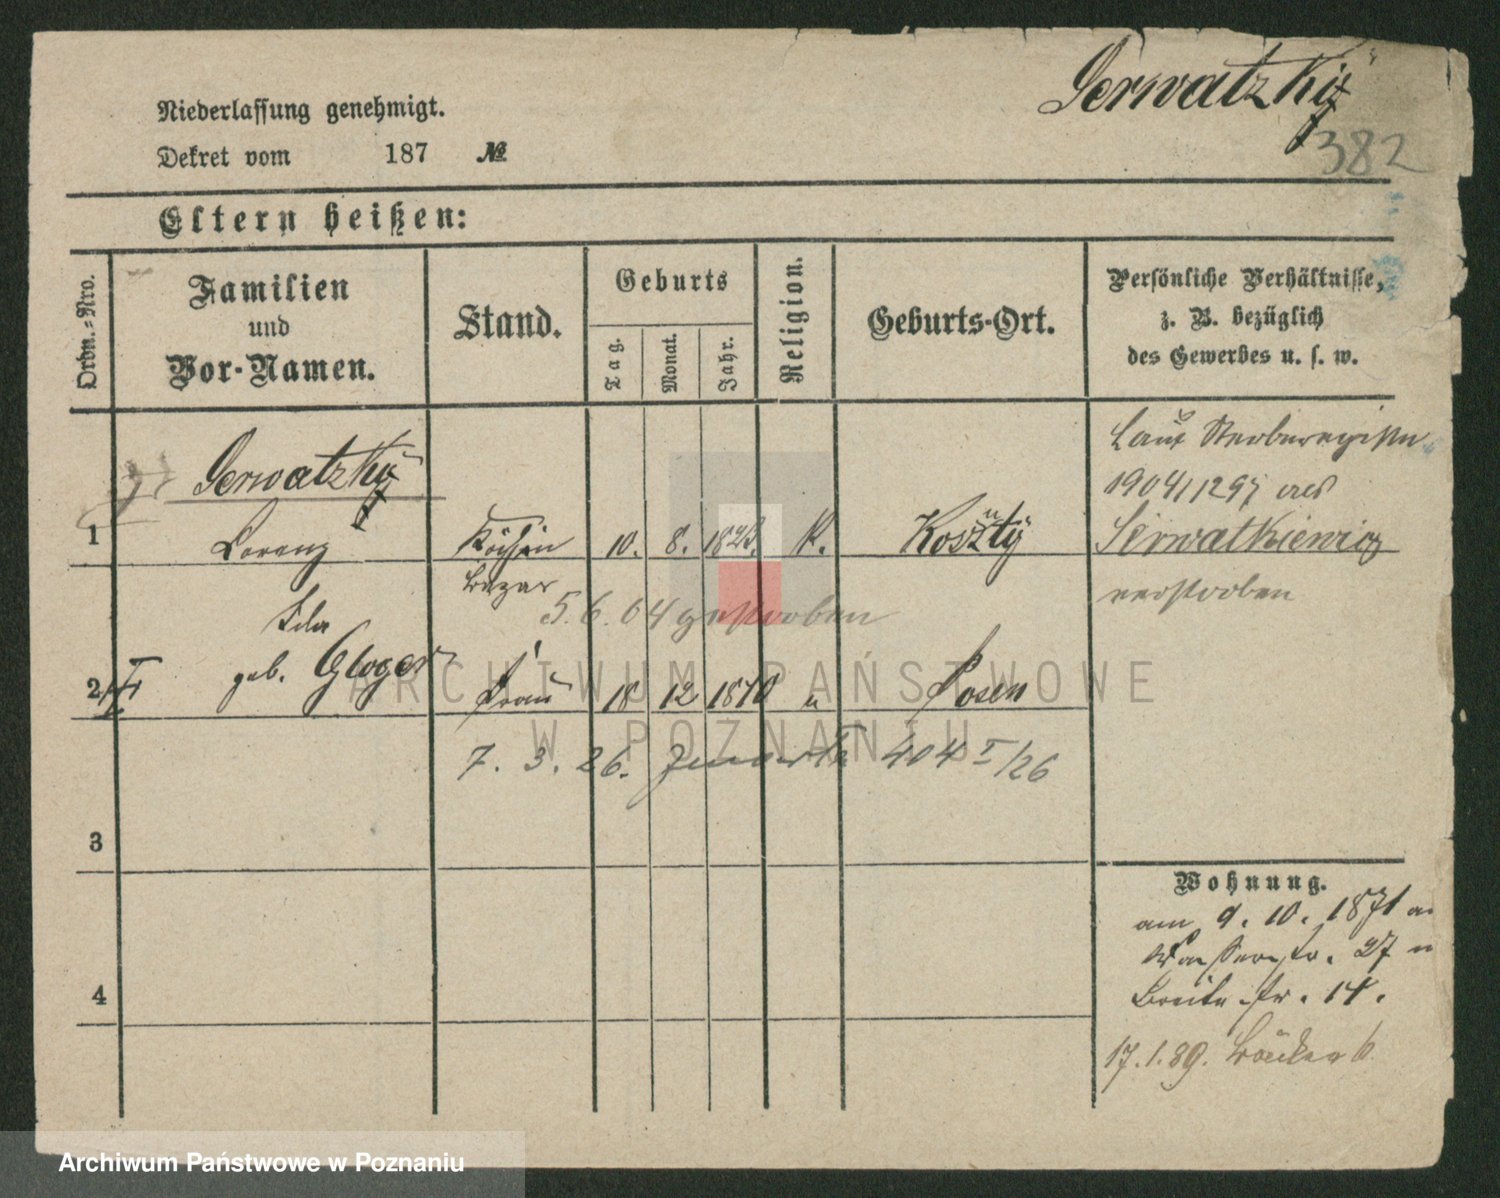 Serwatzky
382
Niederlassung genehmigt.
Dekret vom 187 №
Eltern heißen:
Ordn.=Nro.
Familien
und
Vor-Namen.
Stand.
Geburts
Tag.
Monat.
Jahr.
Religion.
Geburts-Ort.
Persönliche Verhältnisse,
z. B. bezüglich
des Gewerbes u. s. w.
Laut Sterberegister
1904/1297 als
Serwatkiewicz
verstorben
Serwatzky
1 Lorenz 10. 8. K.
5.6.04 gestorben
Ida
2 geb. Gloger Frau 18 12 1870 Posen
7. 3. 26. 404 I/26
3
4
Wohnung.
am 9. 10. 1871
Wasserstr. 27
Breite str. 14.
17.1.89.
ARCHIWUM PAŃSTWOWE
W POZNANIU
Archiwum Państwowe w Poznaniu